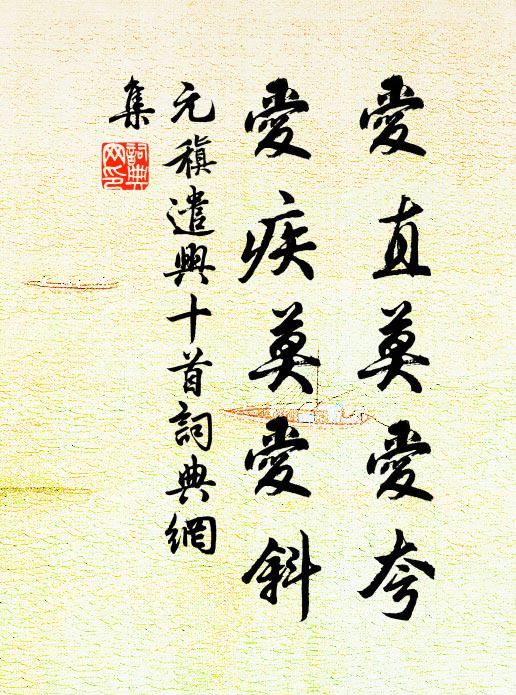 愛直莫愛夸
愛疾莫愛斜
元稹遣興十首詞典網
集
詞典网印